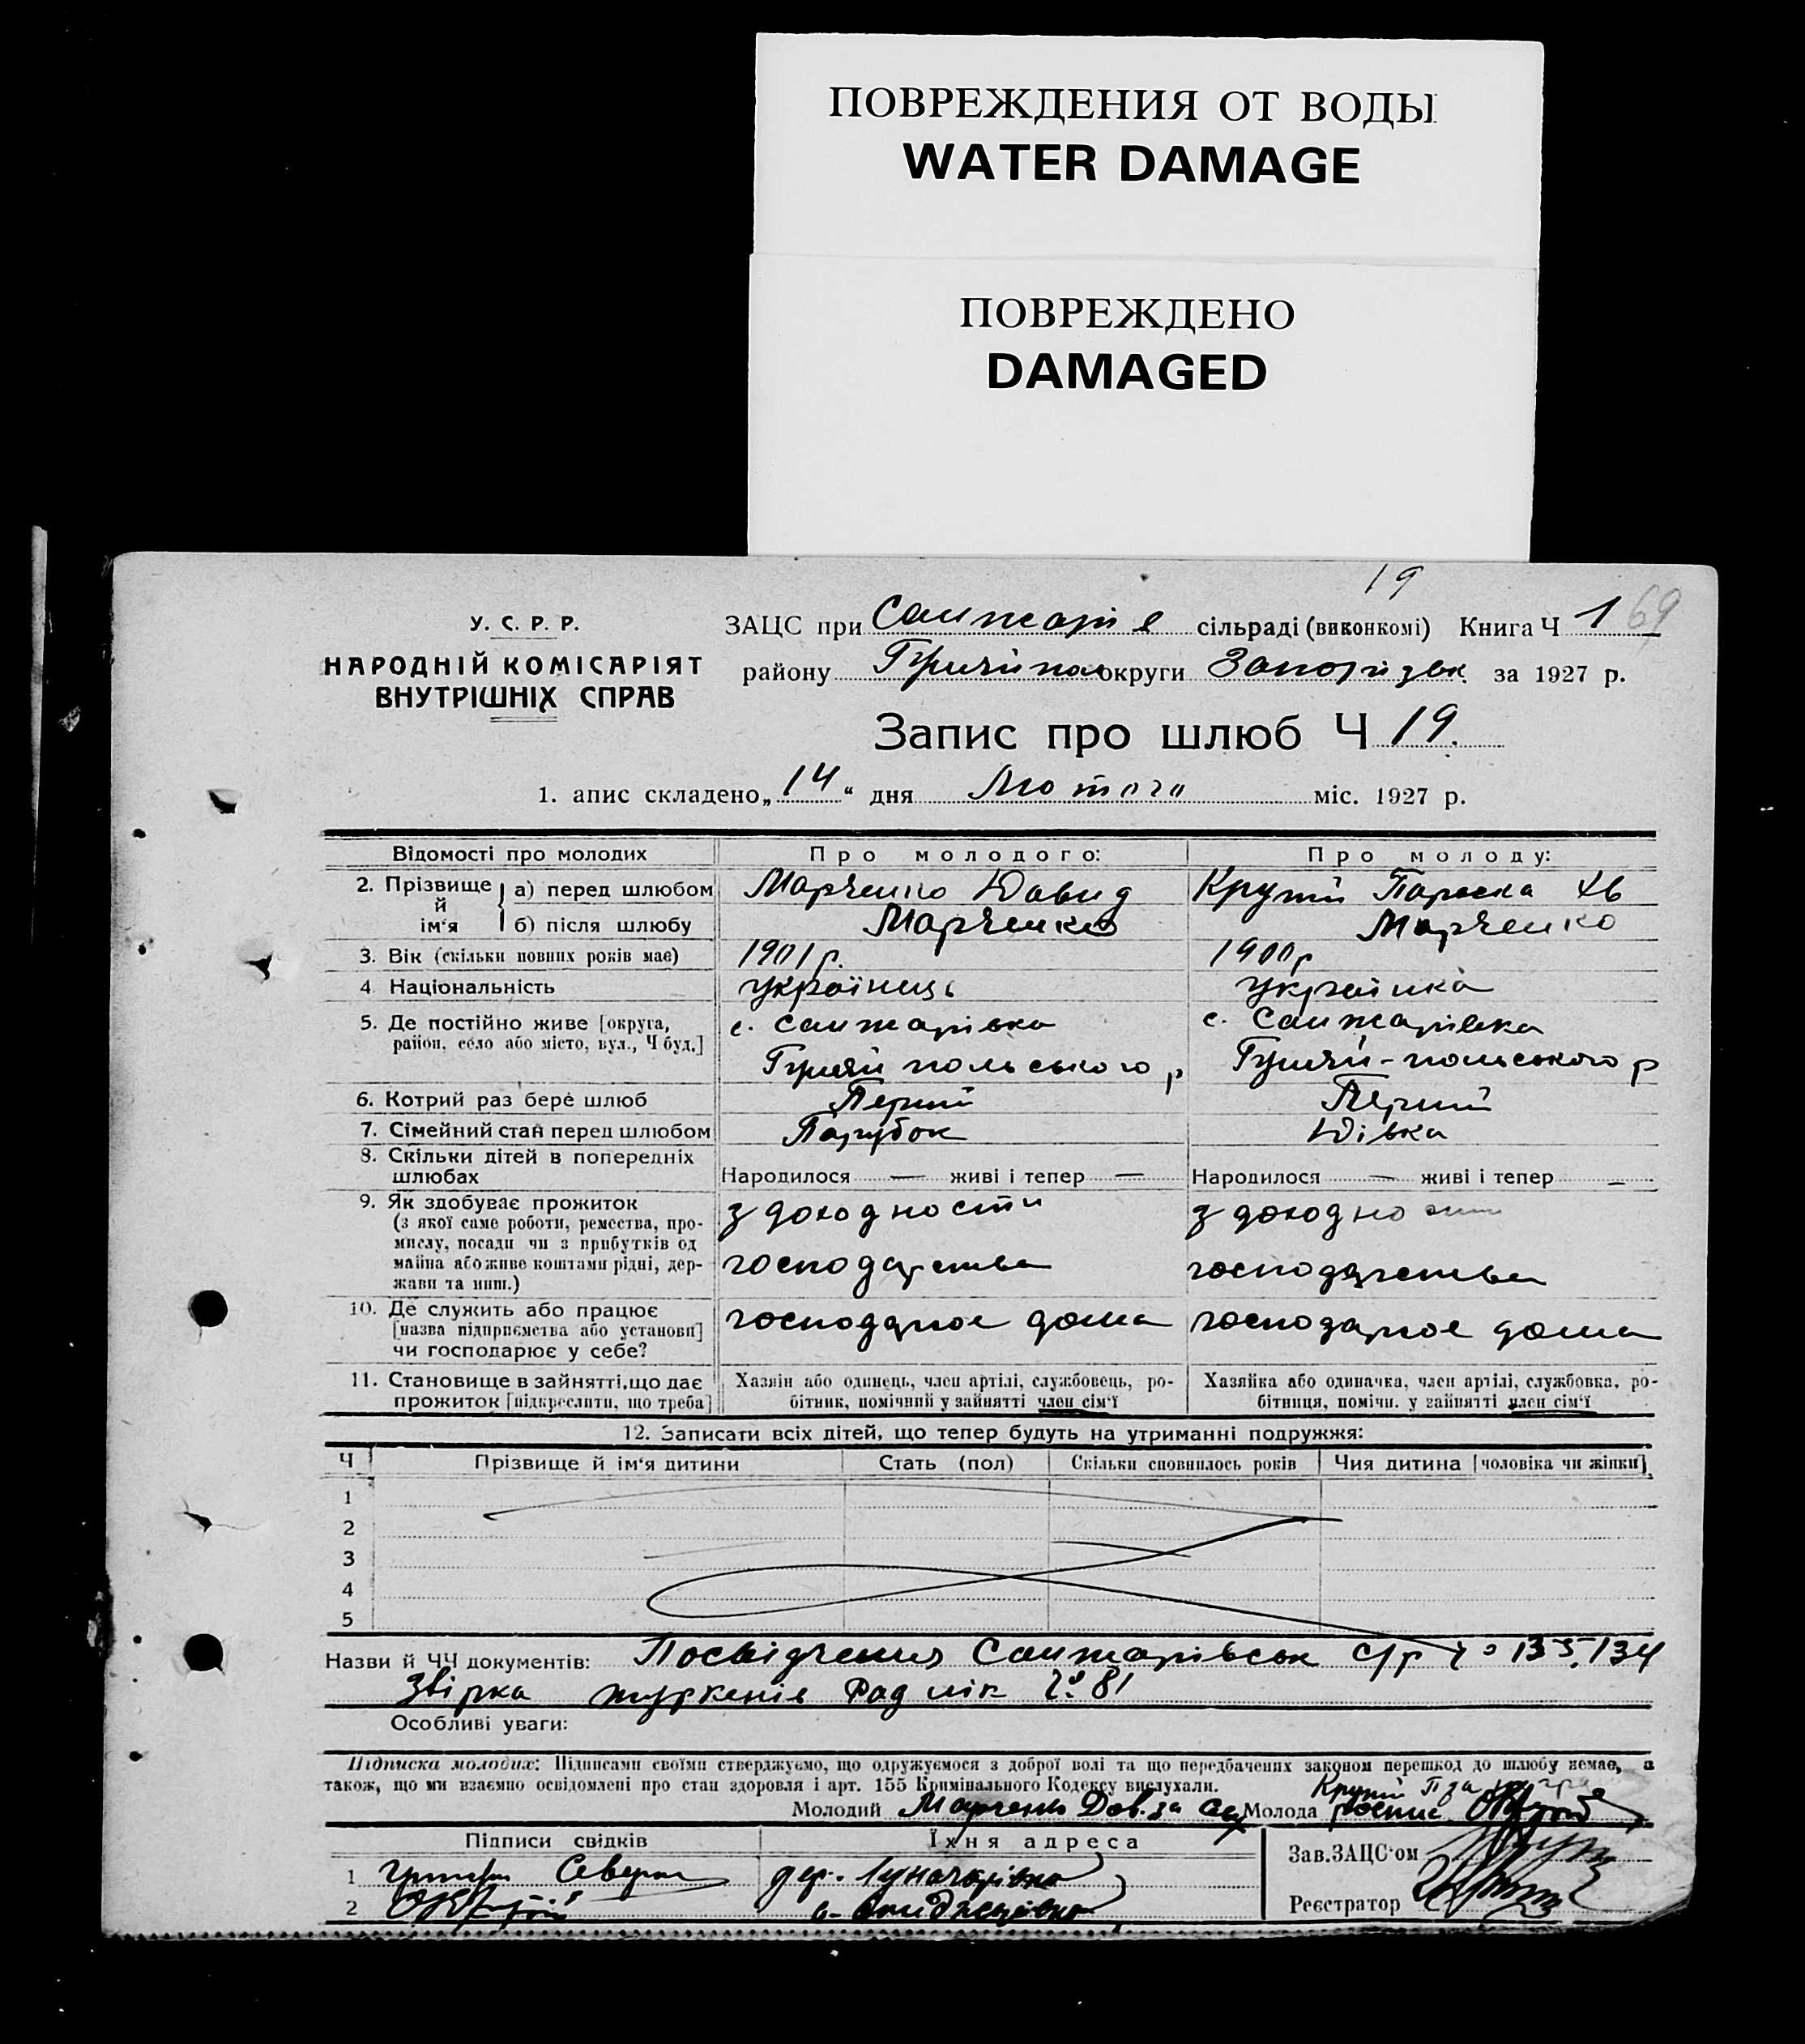 ПОВРЕЖДЕНИЯ ОТ ВОДЫ
WATER DAMAGE
ПОВРЕЖДЕНО
DAMAGED
19
У. С. Р. Р.
НАРОДНІЙ КОМІСАРІЯТ
ВНУТРІШНІХ СПРАВ
ЗАЦС при сільраді (виконкомі) Книга Ч 1 69
району округи Запорізьк за 1927 р.
Запис про шлюб Ч 19.
1. апис складено „14“ дня Лютого міс. 1927 р.
Відомості про молодих Про молодого: Про молоду:
2. Прізвище й ім‘я а) перед шлюбом Марченко Давид Крутій Параска
б) після шлюбу Марченко Марченко
3. Вік (скільки повних років має) 1901 р. 1900 р
4. Національність українець українка
5. Де постійно живе [округа, район, село або місто, вул., Ч буд.] с. Санжарівка с. Санжарівка
польського р польського р
6. Котрий раз бере шлюб Перший Перший
7. Сімейний стан перед шлюбом Парубок Дівка
8. Скільки дітей в попередніх шлюбах Народилося — живі і тепер — Народилося — живі і тепер —
9. Як здобуває прожиток з доходности з доходности
(з якої саме роботи, ремества, про-
мислу, посади чи з прибутків од
майна або живе коштами рідні, дер- господарства господарства
жави та инш.)
10. Де служить або працює господарює дома господарює дома
[назва підприємства або установи]
чи господарює у себе?
11. Становище в зайнятті, що дає Хазяін або одинець, член артілі, службовець, ро- Хазяйка або одиначка, член артілі, службовка, ро-
прожиток [підкреслити, що треба] бітник, помічний у зайнятті член сім‘ї бітниця, помічн. у зайнятті член сім‘ї
12. Записати всіх дітей, що тепер будуть на утриманні подружжя:
Ч Прізвище й ім‘я дитини Стать (пол) Скільки сповнилось років Чия дитина [чоловіка чи жінки]
1
2
3
4
5
Назви й ЧЧ документів: Посвідчення Санжарівськ С/р 135, 134
Звірка № 81
Особливі уваги:
Підписка молодих: Підписами своїми стверджуємо, що одружуємося з доброї волі та що передбачених законом перешкод до шлюбу немає, а
також, що ми взаємно освідомлені про стан здоровля і арт. 155 Кримінального Кодексу вислухали.
Крутій
Молодий Марченко Дав. за Молода
Підписи свідків Їхня адреса Зав. ЗАЦС‘ом
1
2 Реєстратор